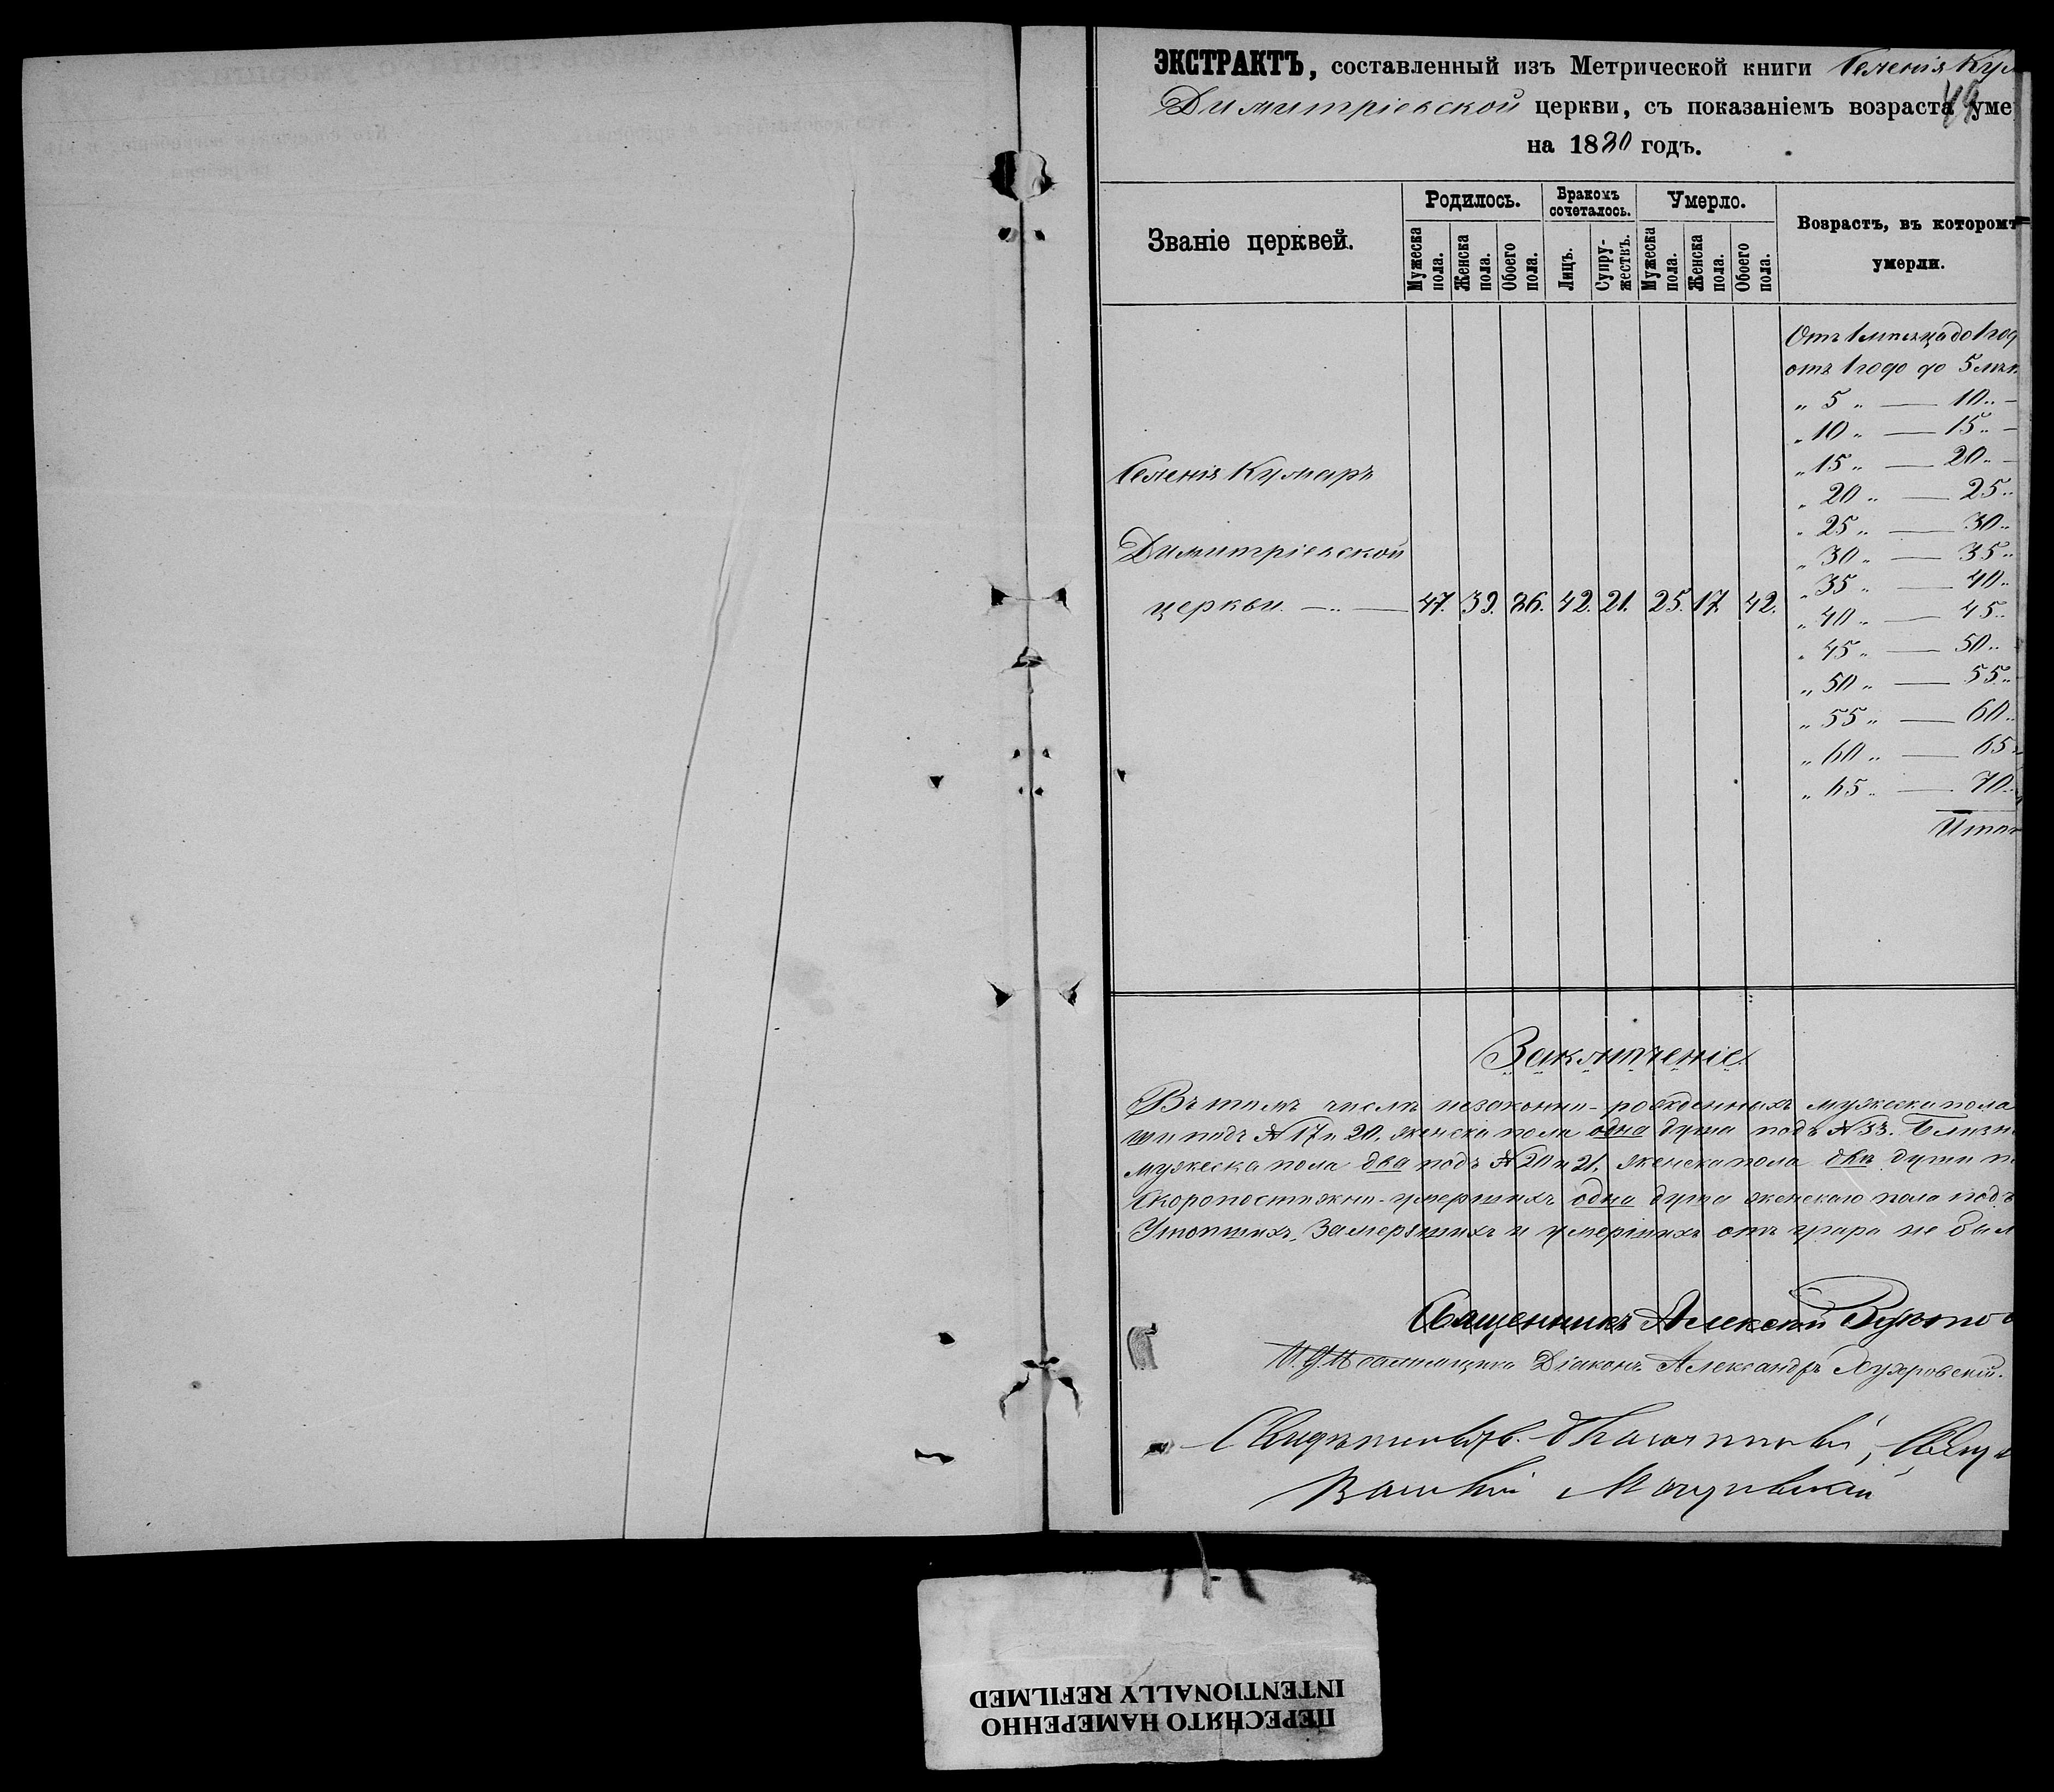 ЭКСТРАКТЪ, составленный изъ Метрической книги Селенія Кум
Димитріевской церкви, съ показаніемъ возраста уме
на 1880 годъ.
Званіе церквей.
Родилось.
Бракомъ сочеталось.
Умерло.
Возрастъ, въ которомъ
умерли.
Мужеска пола.
Женска пола.
Обоего пола.
Лицъ.
Супружествъ.
Мужеска пола.
Женска пола.
Обоего пола.
Отъ 1 мѣсяца до 1 год
отъ 1 года до 5 лѣт
„ 5 „ — 10 „ —
„ 10 „ — 15 „ —
„ 15 „ — 20 „ —
„ 20 „ — 25 „
„ 25 „ — 30 „
„ 30 „ — 35 „
„ 35 „ — 40 „
„ 40 „ — 45 „
„ 45 „ — 50 „
„ 50 „ — 55 „
„ 55 „ — 60 „
„ 60 „ — 65 „
„ 65 „ — 70 „
Итог
Селенія Кумаръ
Димитріевской
церкви — „ — 47. 39. 86. 42. 21. 25. 17. 42.
Заключеніе.
Въ томъ числѣ незаконно-рожденныхъ мужеска пола
ши подъ № 17 и 20, женска пола одна душа подъ № 33. Близн
мужеска пола два подъ № 20 и 21, женска пола двѣ души п
Скоропостижно-умершихъ одна душа женскаго пола подъ
Утопшихъ, замерзшихъ и умершихъ отъ угара не был
Священникъ Алексій
И. Д. Псаломщика Діаконъ Александръ
Свидѣтельств. Благочинный, Свящ
Василій
ПЕРЕСНЯТО НАМЕРЕННО
INTENTIONALLY REFILMED